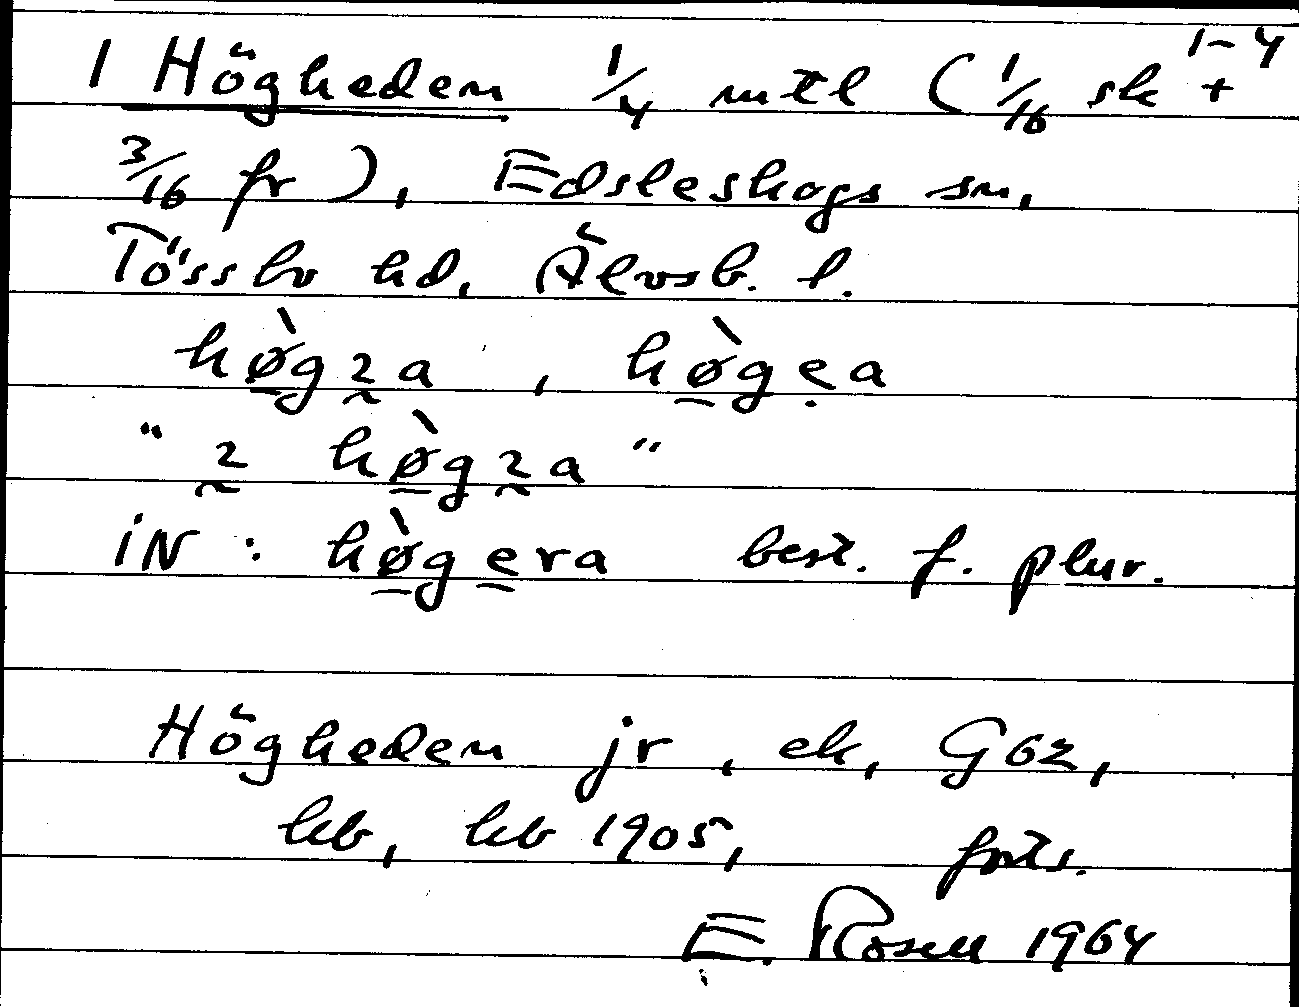 1 Högheden 1/4 mtl (1/16 sk 1-4 +
3/16 fr), Edsleskogs sn,
Tössbo hd, Älvsb. l.
hø̀gɿa, hø̀gea
"ɿ hø̀gɿa"
iN: hø̀gera best. f. plur.
Högheden jr, ek, G62,
hb, kb 1905, forts.
E. Rosell 1964